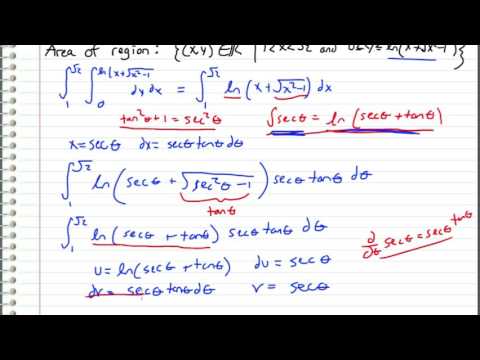 Area of region: {(x,y) ∈ ℝ | 1≤x≤√2 and 0≤y≤ln(x+√x²-1)}
∫₁^√2 ∫₀^ln(x+√x²-1) dy dx = ∫₁^√2 ln(x+√x²-1) dx
tan²θ+1 = sec²θ ∫secθ = ln(secθ+tanθ)
x=secθ dx= secθ tanθ dθ
∫₁^√2 ln(secθ + √sec²θ -1) secθ tanθ dθ
tanθ
∫₁^√2 ln(secθ + tanθ) secθ tanθ dθ
∂/∂θ secθ = secθ tanθ
u= ln(secθ + tanθ) du = secθ
dv = secθ tanθ dθ v = secθ